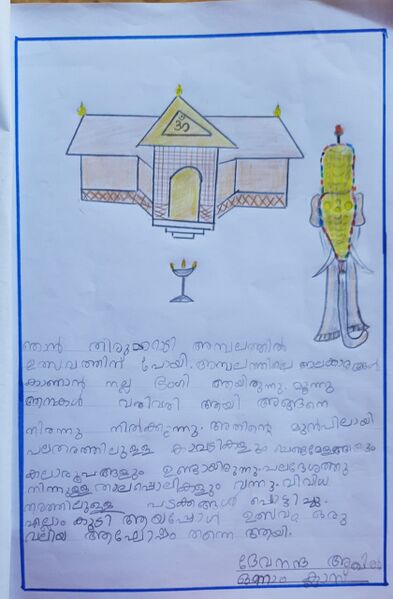 ഓം
ഞാൻ തിരുമറാടി അമ്പലത്തിൽ
ഉത്സവത്തിന് പോയി. അമ്പലത്തിലെ അലങ്കാരങ്ങൾ
കാണാൻ നല്ല ഭംഗി ആയിരുന്നു. മൂന്നു
ആനകൾ വരിവരി ആയി അങ്ങനെ
നിരന്നു നിൽക്കുന്നു. അതിന്റെ മുൻപിലായി
പലതരത്തിലുള്ള കാവടികളും ചെണ്ടമേളങ്ങളും
കലാരൂപങ്ങളും ഉണ്ടായിരുന്നു. പലദേശത്തു
നിന്നുള്ള താലപ്പൊലികളും വന്നു. വിവിധ
തരത്തിലുള്ള പടക്കങ്ങൾ പൊട്ടിച്ചു.
എല്ലാം കൂടി ആയപ്പോൾ ഉത്സവം ഒരു
വലിയ ആഘോഷം തന്നെ ആയി.
ദേവനന്ദ
ഒന്നാം ക്ലാസ്